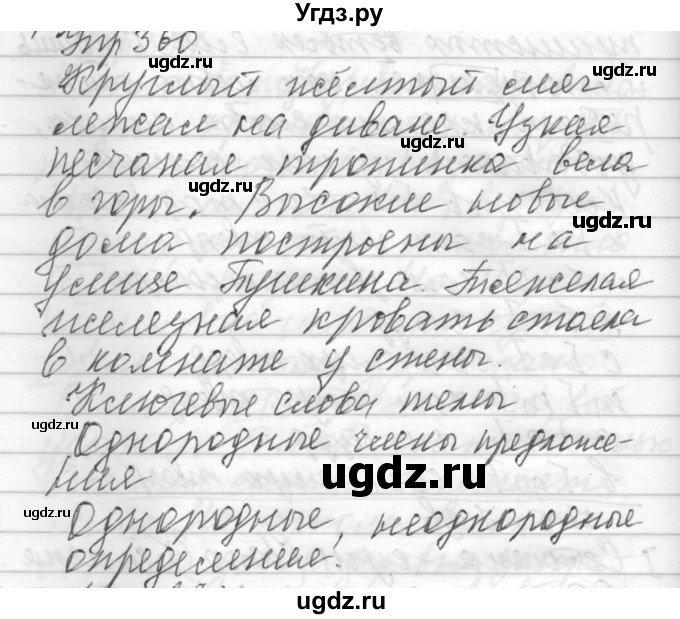 Угдз.ру
Упр 360.
Круглый жёлтый мяч
лежал на диване. Узкая
песчаная тропинка вела
в горы. Высокие новые
дома построены на
улице Пушкина. Тяжелая
железная кровать стояла
в комнате у стены.
Ключевые слова темы
Однородные члены предложе-
ния
Однородные, неоднородные
определения.
ugdz.ru
ugdz.ru
ugdz.ru
ugdz.ru
ugdz.ru
ugdz.ru
ugdz.ru
ugdz.ru
ugdz.ru